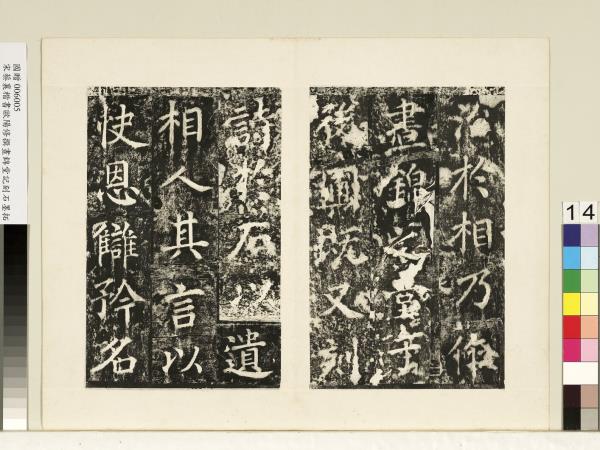 治於相乃作
晝錦之堂于
後圃既又刻
詩於石以遺
相人其言以
快恩讎矜名
國贈 006005
宋蔡襄楷書歐陽修撰晝錦堂記刻石墨拓
14